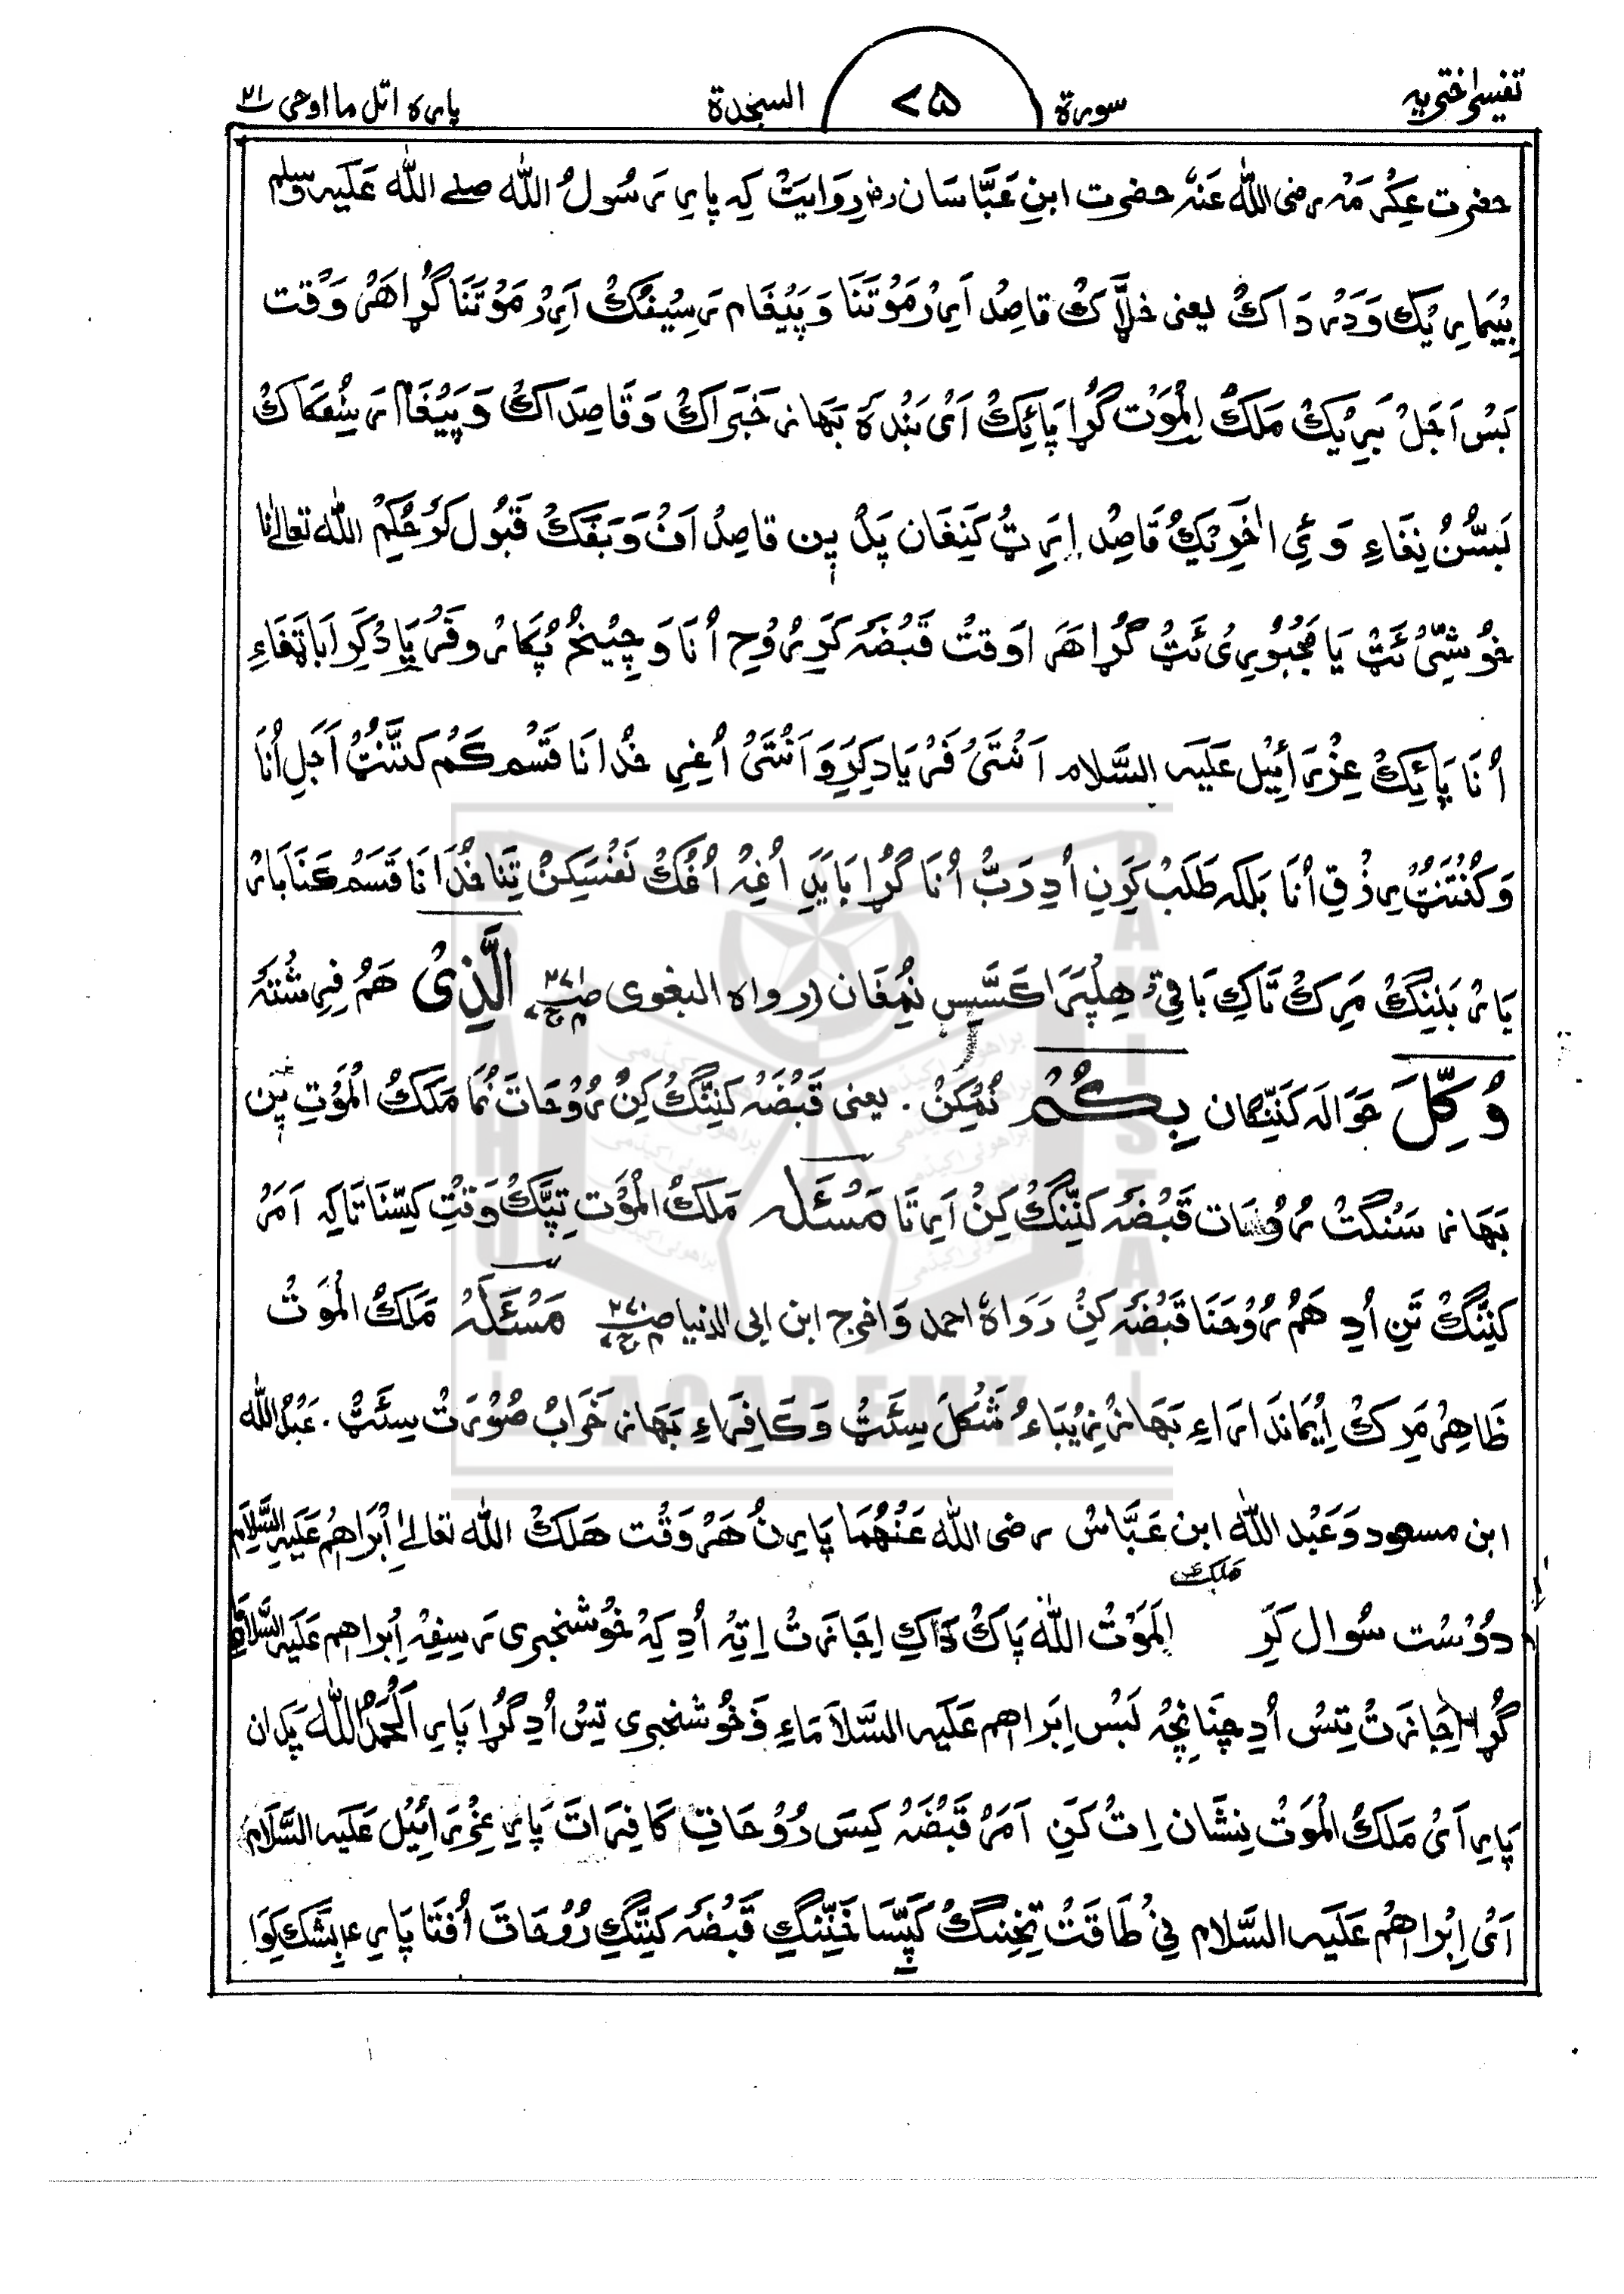 تفسیر اختریہ سورة ۷۵ السجدة پاره اتل ما اوحی ۲۱
حضرت عِکْرمَہ رضی اللہ عَنہ حضرت ابنِ عَبَّاسَان رض رِوَایَتْ کِہ پارِ رَسُولُ اللہ صلے اللہ عَلَیہ وسلم
بِیْمَارِیْک وَدَرْدَاکْ یعنی خلّاکْ قاصِدْ اَرِرْ مَوْتَنَا وَپَیْغَام رَسِیْفَکْ اَرِرْ مَوْتَنَا گُڑا هَرْ وَقْت
بَسْ اَجَلْ بَرِیْک مَلَکُ الْمَوْت گُڑا پَائِکْ اَیْ بَنْدَہ بَهَاز خَبَراکْ وَقَاصِدَاکْ وَپَیْغَام رَسِفَکاکْ
بَسُّنْ نِغَاءِ وَنِی اٰخِرِیْکُ قَاصِدْ اِرِٹ کَنِغَان پَدْ پِن قاصِدْ اَفْ وَبَفَکْ قَبُول کَرْ حُکمِ اللہ تعالےٰنا
خُوشِّیْ ئَٹْ یَا مَجْبُورِی ئَٹْ گُڑا هَرَ اوَقتْ قَبْضَہ کَرِ رُوحِ اُنَا وَچِیْخُ پُکَارْ وفَرْیَادْ کَرِ
اُنَا پَائِکْ عِزْرَائِیْل عَلَیہ السَّلام اَنْتَیْ فَرْیَاد کِرِوَ اَنْتَیْ اُغِرِ خُدانَا قَسْم کَم کتَّنَٹْ اَجَلِ اُنَا
وَکُنْتَنَٹْ رِزْقِ اُنَا بَلکہ طَلَبْ کَرِنِ اُدِ رَبُّ اُنَا گُڑا اُغِہْ اُفَکْ نَفْسَیکنْ تِنَا خُدَانَا قَسَمْ کَنَا بَارْ
بَارْ بَنِنگْ مَرِکْ تَاکِ بَاقِیْ هِلْپَرَا کَسَّیسِ نُمغَان (رواہ البغوی ص۳۷۱ ج۴) الَّذِیْ هَمْ فِرِشْتَہ
وُکِّلَ حَوَالَہ کَنِنگان بِکُمْ نُمْکِنْ. یعنی قَبْضَہ کَنِنگْ کِنْ رُوْحَاتَ نُمَا مَلَکُ الْمَوْتِ پِن
بَهَاز سَنْگَتْ رُوْحَات قَبْضَہ کَنِنگْ کِنْ اَرِتَا مَسْئَلہ مَلَکُ الْمَوْت تِپَّکْ وَقتِ کسِّنَا تَاکِہ اَمَرْ
کَنِنگْ تَن اُدِ هَمْ رُوْحَنَا قَبْضَہ کنْ رَوَاہ احمد وَاخرج ابن ابی الدنیا ص۳۷۰ ج۴ مَسْئَلَہ مَلَکُ الْمَوتْ
ظَاهِرْ مَرِکْ اِیْمَاندَارَاءِ بَهَاز زِیْبَاءُ شَکْلَ سِئَٹْ وَکَافِرَاءِ بَهَاز خَرَابْ صُوْرَتْ سِئَٹْ. عَبْدُ اللہ
ابن مسعود وَعَبْد اللہ ابن عَبَّاسْ رضی اللہ عَنْهُمَا پَارِنْ هَرْ وَقْت هَلَکْ اللہ تعالےٰ اِبْرَاهِمْ عَلَیہِ السَّلَام
دُوْسْت سُوال کَرِّ مَلَکُ الْمَوْتْ اللہ پَاکْ تَاکِ اِجَازَتْ اِتِہْ اُدِ کِہْ خُوشخبری رَسِفِہْ اِبْرَاهم عَلَیہ السَّلام
گُڑا اِجَازَتْ تِسْ اُدِ چِنَانِچُہ بَسْ اِبْرَاهم عَلَیہ السَّلاَمَاءِ وَخُوشخبری تِسْ اُدِ گُڑا پَارِ اَلْحَمْدُ لِلّٰہ پَدان
پَارِ اَیْ مَلَکُ الْمَوتْ نِشَان اِتْ کَنِ اَمَرْ قَبْضَہْ کِیسَ رُوْحَاتِ کَافِرَاتَ پَارِ عِزْرَائِیْل عَلَیہ السَّلَام
اَیْ اِبْرَاهِمْ عَلَیہ السَّلام نِی طَاقَتْ تِخِنگْ کَپِّسَا خَنِنگِ قَبْضَہ کَنِنگِ رُوْحَاتَ اُفتَا پَارِ